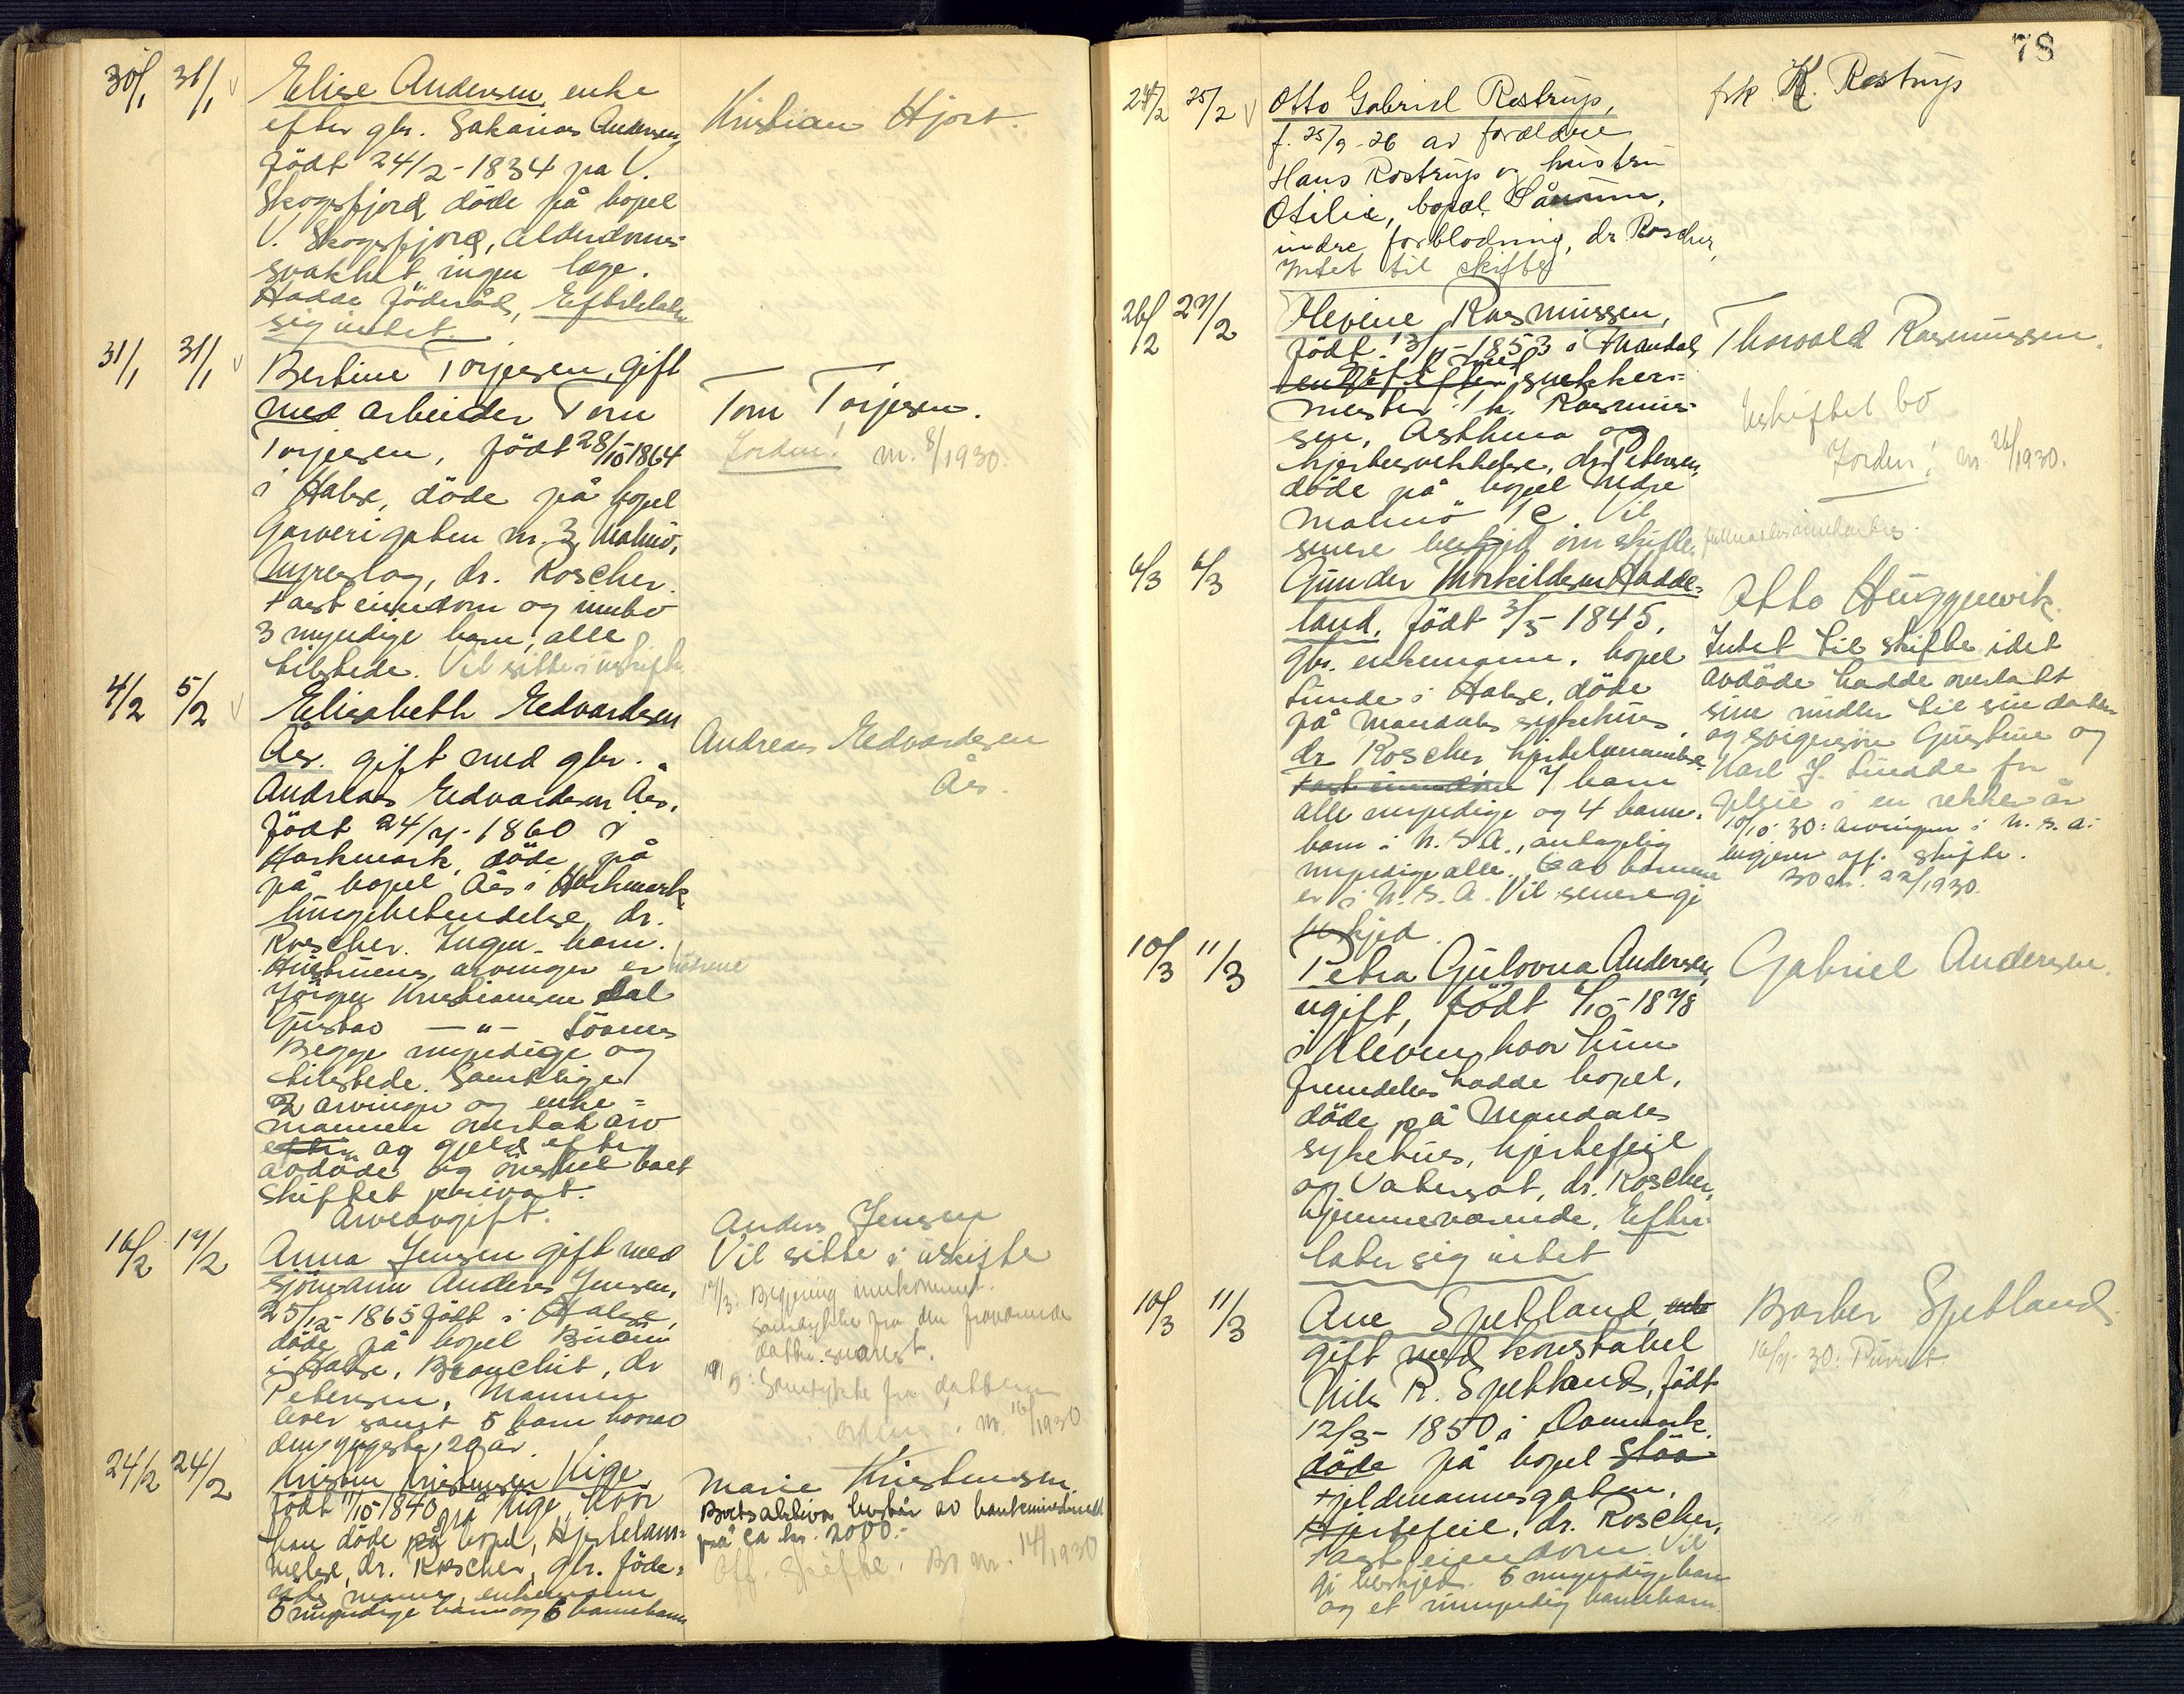 30/1 31/1
Elise Andersen, enke
efter gbr. Sakarias Andersen,
Födt 24/2-1834 på V.
Skogsfjord, döde på bopel
V. Skogsfjord, alderdoms-
svakhet, ingen læge.
Hadde föderåd, Efterlater
sig intet.
Kristian Hjort.
31/1 31/1
Bertine Torjesen, gift
med arbeider Tom
Torjesen, födt 28/10 1864
i Halse, döde på bopel
Garverigaten nr. 3, Malmö,
dr. Roscher.
Fast eiendom og innbo
3 myndige barn, alle
tilstede. Vil sitte i uskifte
Tom Torjesen.
Jorden! nr. 8/1930.
4/2 5/2
Elisabeth Edvardsen
Ås. gift med gbr.
Andreas Edvardsen Ås,
födt 24/4-1860 i
Harkmark, döde på
på bopel Ås i Harkmark
lungebetendelse, dr.
Roscher. Ingen barn.
Hustruens arvinger er
Jörgen Kristiansen Dal
Gustav —"—
Begge myndige og
tilstede. Samtlige
2 arvinger og enke-
mannen overtok arv
efter og gjeld efter
avdöde og önsket boet
skiftet privat.
Arveavgift.
Andreas Edvardsen
Ås.
16/2 17/2
Anna Jensen gift med
sjömann Anders Jensen,
25/12-1865 födt i Halse,
döde på bopel
i Halse, Bronchit, dr
Petersen, Mannen
lever samt 5 barn hvorav
den yngste 20 år.
Anders Jensen
Vil sitte i uskifte
17/3: Begjering innkommet.
Samtykke fra den fraværende
datter snarest.
Samtykke fra datteren
nr. 16/1930
24/2 24/2
Kristen Kristensen Uige
födt 11/10 1840 på Uige, hvor
han döde på bopel, Hjertelam-
melse, dr. Roscher, gbr. föde-
råds mann, enkemann
5 myndige barn og 6 barnebarn
Marie Kristensen.
Boets aktiva består av bankinnskudd
på ca kr. 2000.-
Off. Skifte. Bo nr. 14/1930
78
24/2 25/2
Otto Gabriel Rostrup,
f. 25/9-26 av forældre
Hans Rostrup og hustru
Otilie, bopæl Sånum,
indre forblodning, dr. Roscher,
Intet til skifte
frk. K. Rostrup
26/2 27/2
Olevine Rasmussen,
födt 13/4-1853 i Mandal,
enke efter gift med snekker-
mester Th. Rasmus-
sen, Asthma og
hjertesvekkelse, dr. Petersen,
döde på bopel Nedre
Malmö 1c. Vil
senere beskjed om skifte.
Thorvald Rasmussen.
Uskiftet bo
Jorden! nr 26/1930.
6/3 6/3
Gunder Thorkildsen Hadde-
land, födt 3/5-1845,
gbr. enkemann, bopel
Lunde i Halse, döde
på Mandals sykehus,
dr. Roscher, hjertelammelse.
Fast eiendom 7 barn
alle myndige og 4 barne-
barn i U.S.A., antagelig
myndige alle. 6 av barnene
er i U.S.A. Vil senere gi
beskjed.
Otto Huggenvik.
Intet til skifte idet
avdöde hadde overlatt
sine midler til sin datter
og svigersön Gustine og
Karl J. Lunde for
pleie i en rekke år
10/10-30: Arvingen i U.S.A.
begjerer off. skifte.
Bo nr. 22/1930.
10/3 11/3
Petra Gulovna Andersen,
ugift, födt 4/10-1878
i Kleven hvor hun
fremdeles hadde bopel,
döde på Mandals
sykehus, hjertefeil
og Vatersot, dr. Roscher,
hjemmeværende. Efter-
later sig intet
Gabriel Andersen.
10/3 11/3
Ane Spetland, enke
gift med konstabel
Nils R. Spetland, födt
12/3-1850 i Danmark
döde på bopel Stöa
Fjeldmannsgaten,
Hjertefeil, dr. Roscher,
Fast eiendom. Vil
gi beskjed. 5 myndige barn
og et umyndig barnebarn.
Barber Spetland
16/4-30: Purret